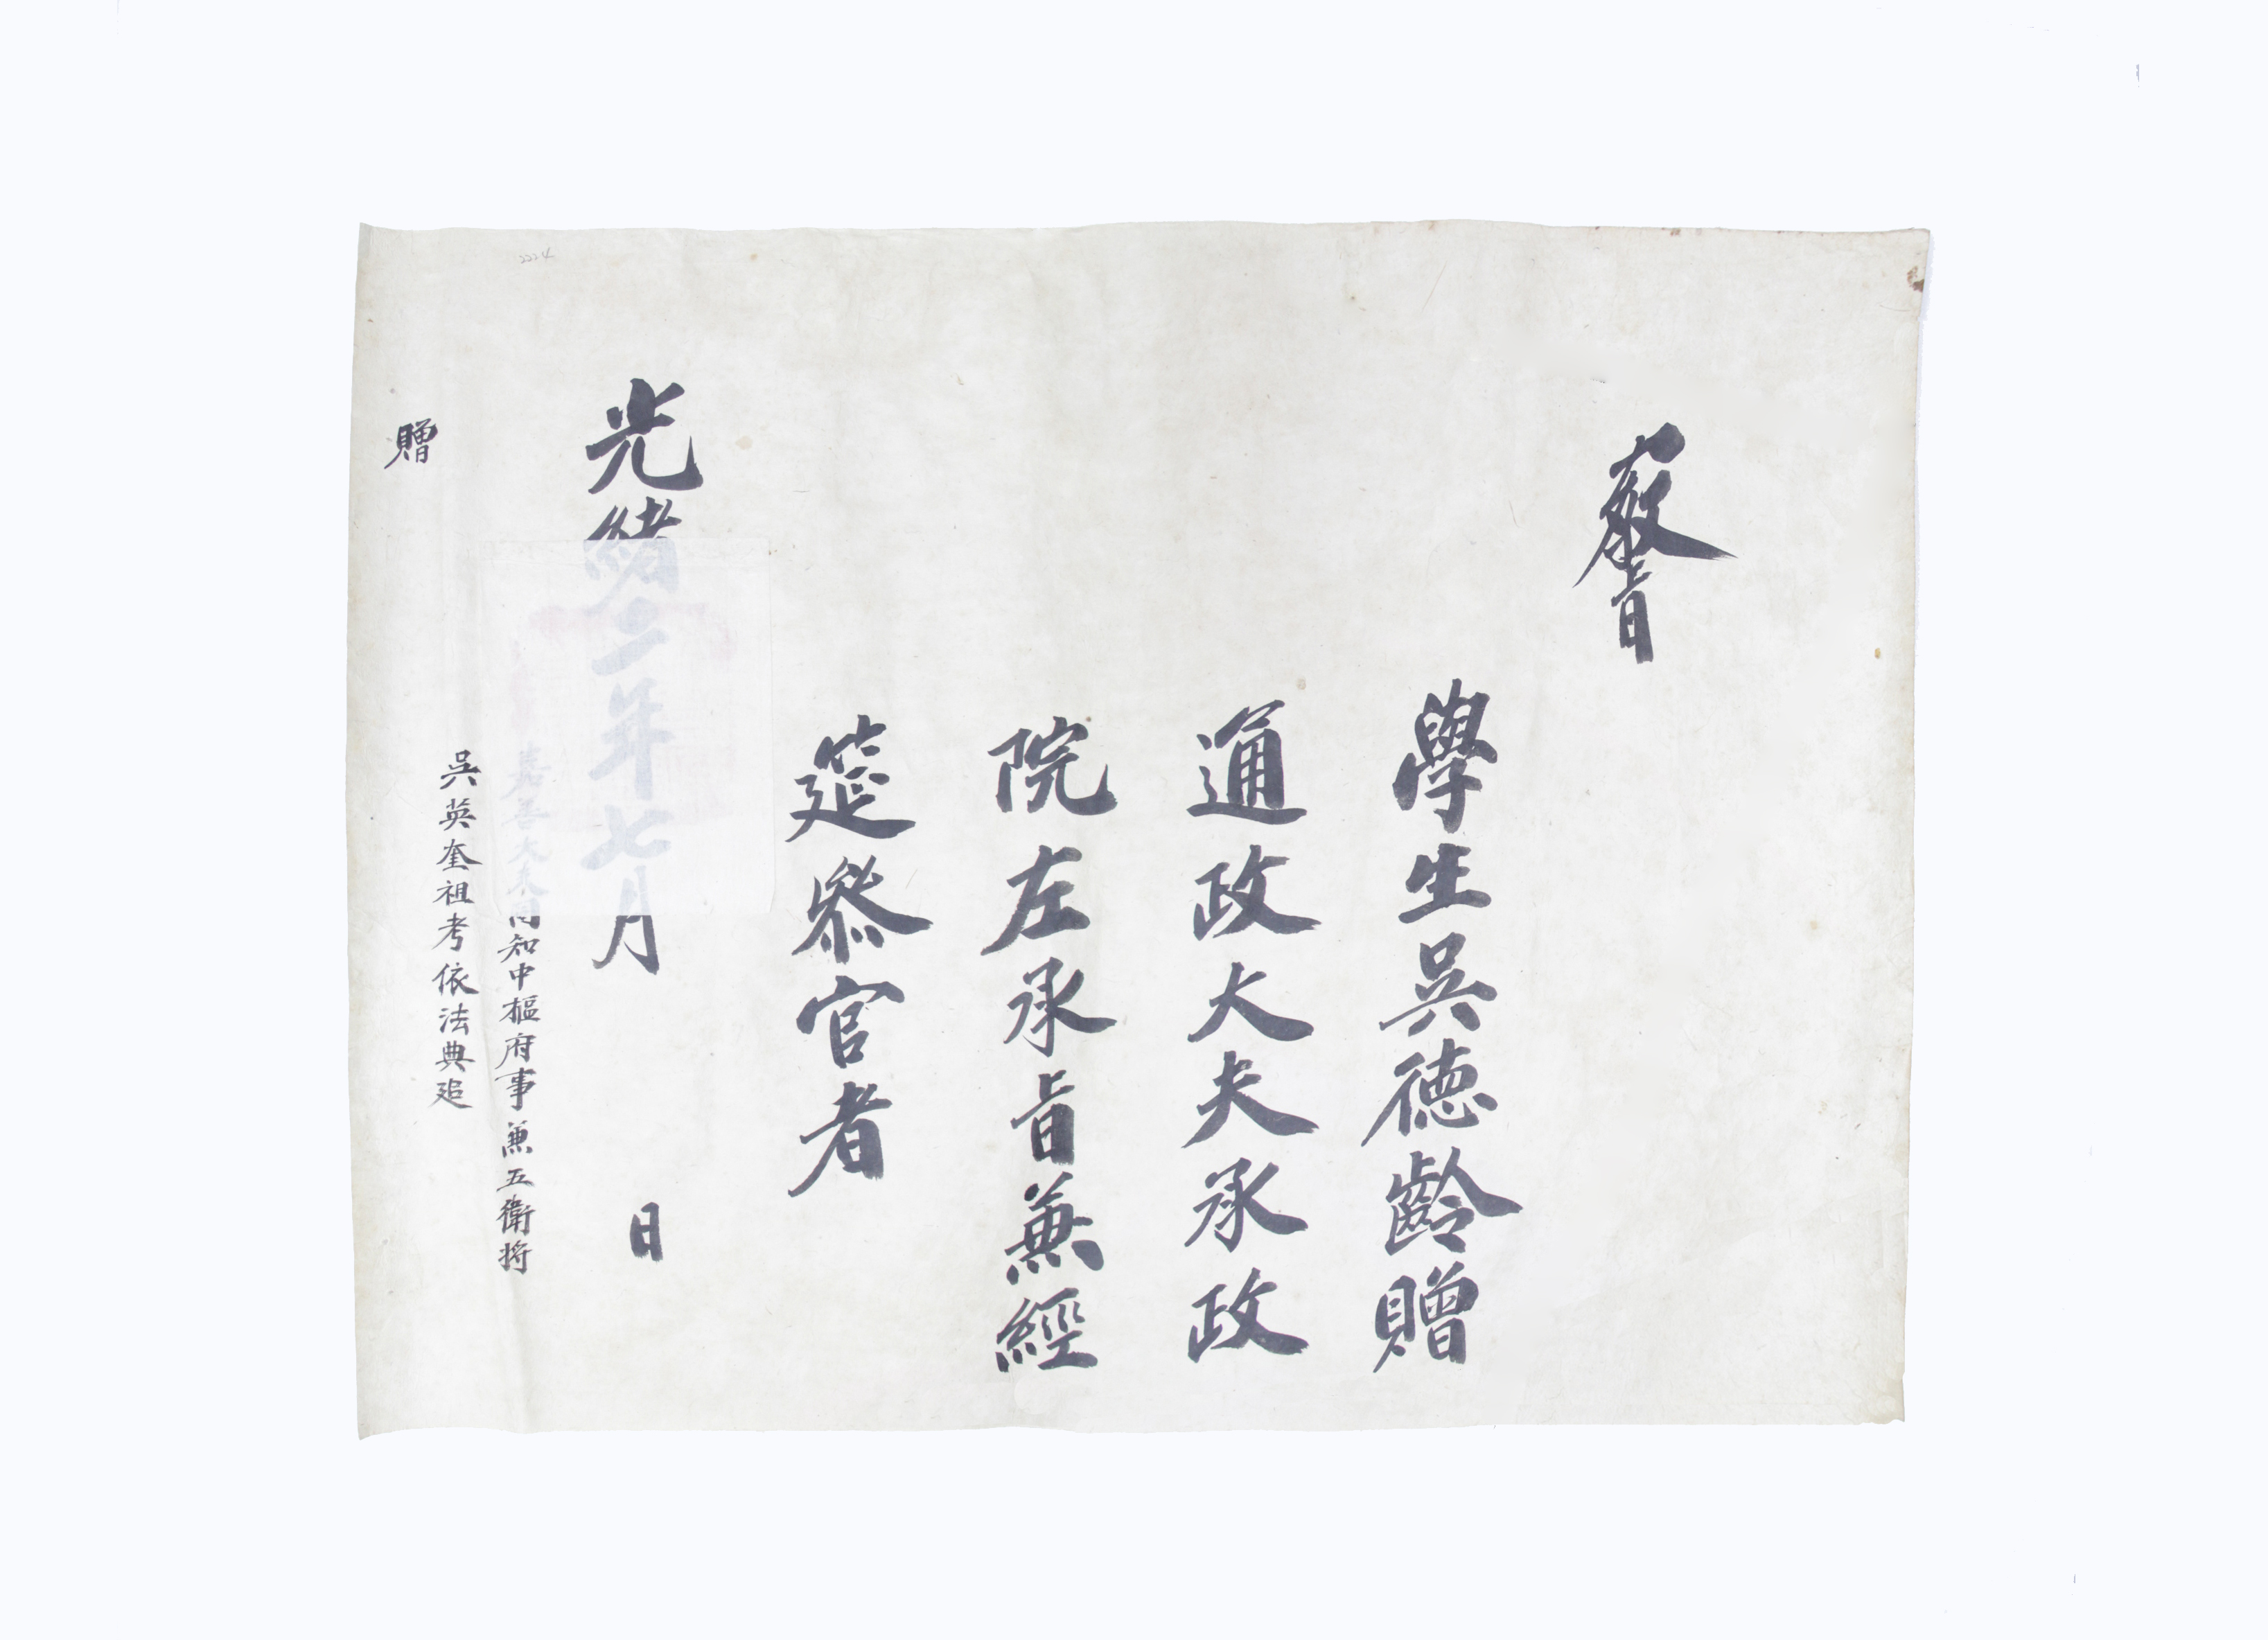 敎旨
學生吳德齡贈
通政大夫承政
院左承旨兼經
筵參官者
光緖二年七月 日
嘉善大夫同知中樞府事兼五衛將
吳英奎祖考依法典追
贈
2224